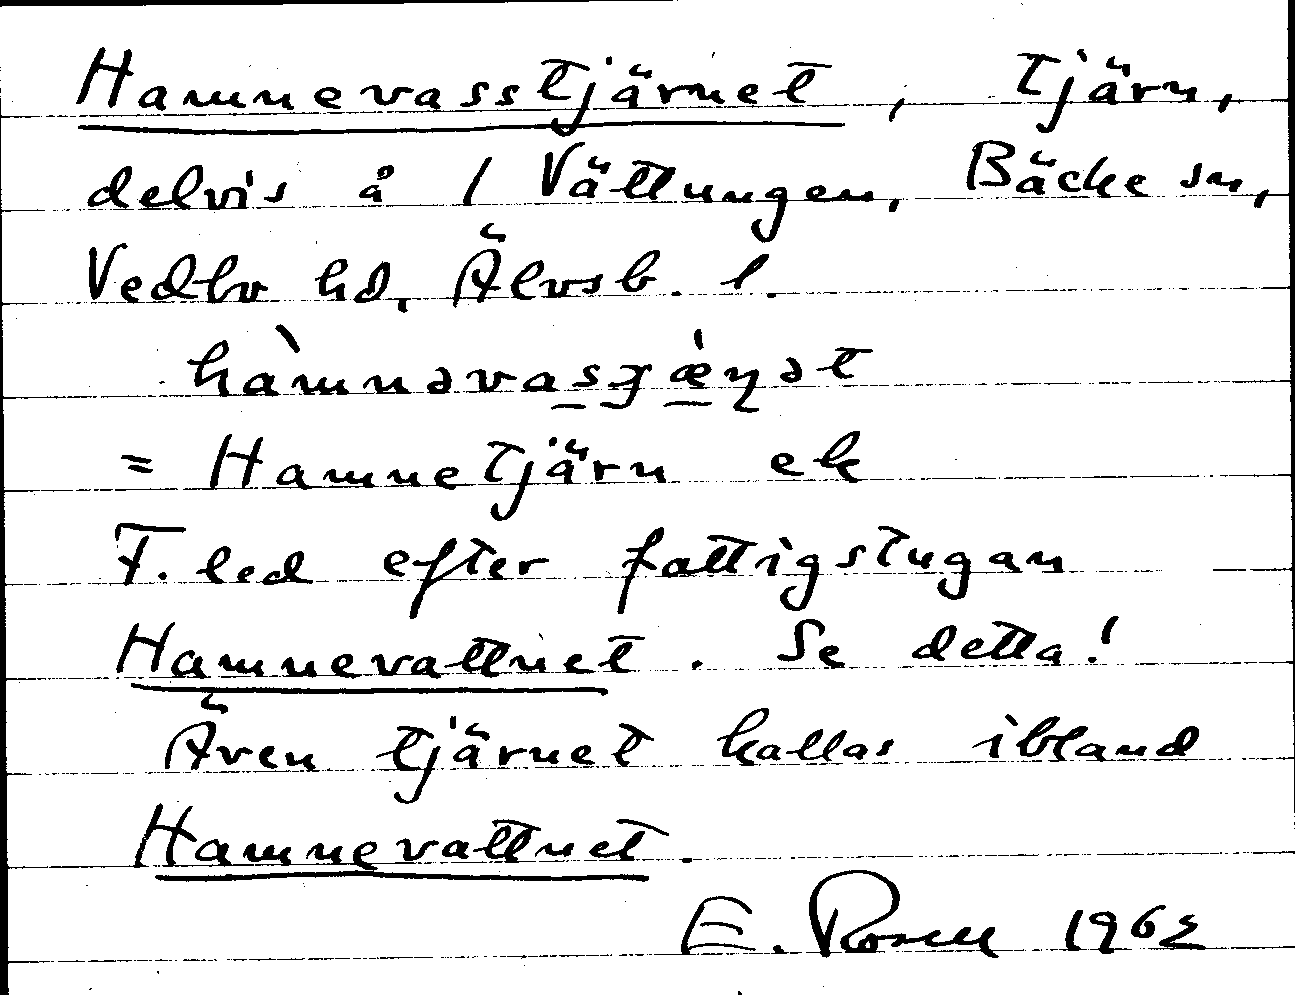 Hamnevasstjärnet, tjärn,
delvis å 1 Vättungen, Bäcke sn,
Vedbo hd, Älvsb. l.
= Hamnetjärn ek
F. led efter fattigstugan
Hamnevattnet. Se detta!
Även tjärnet kallas ibland
Hamnevattnet.
E. Rosell 1962